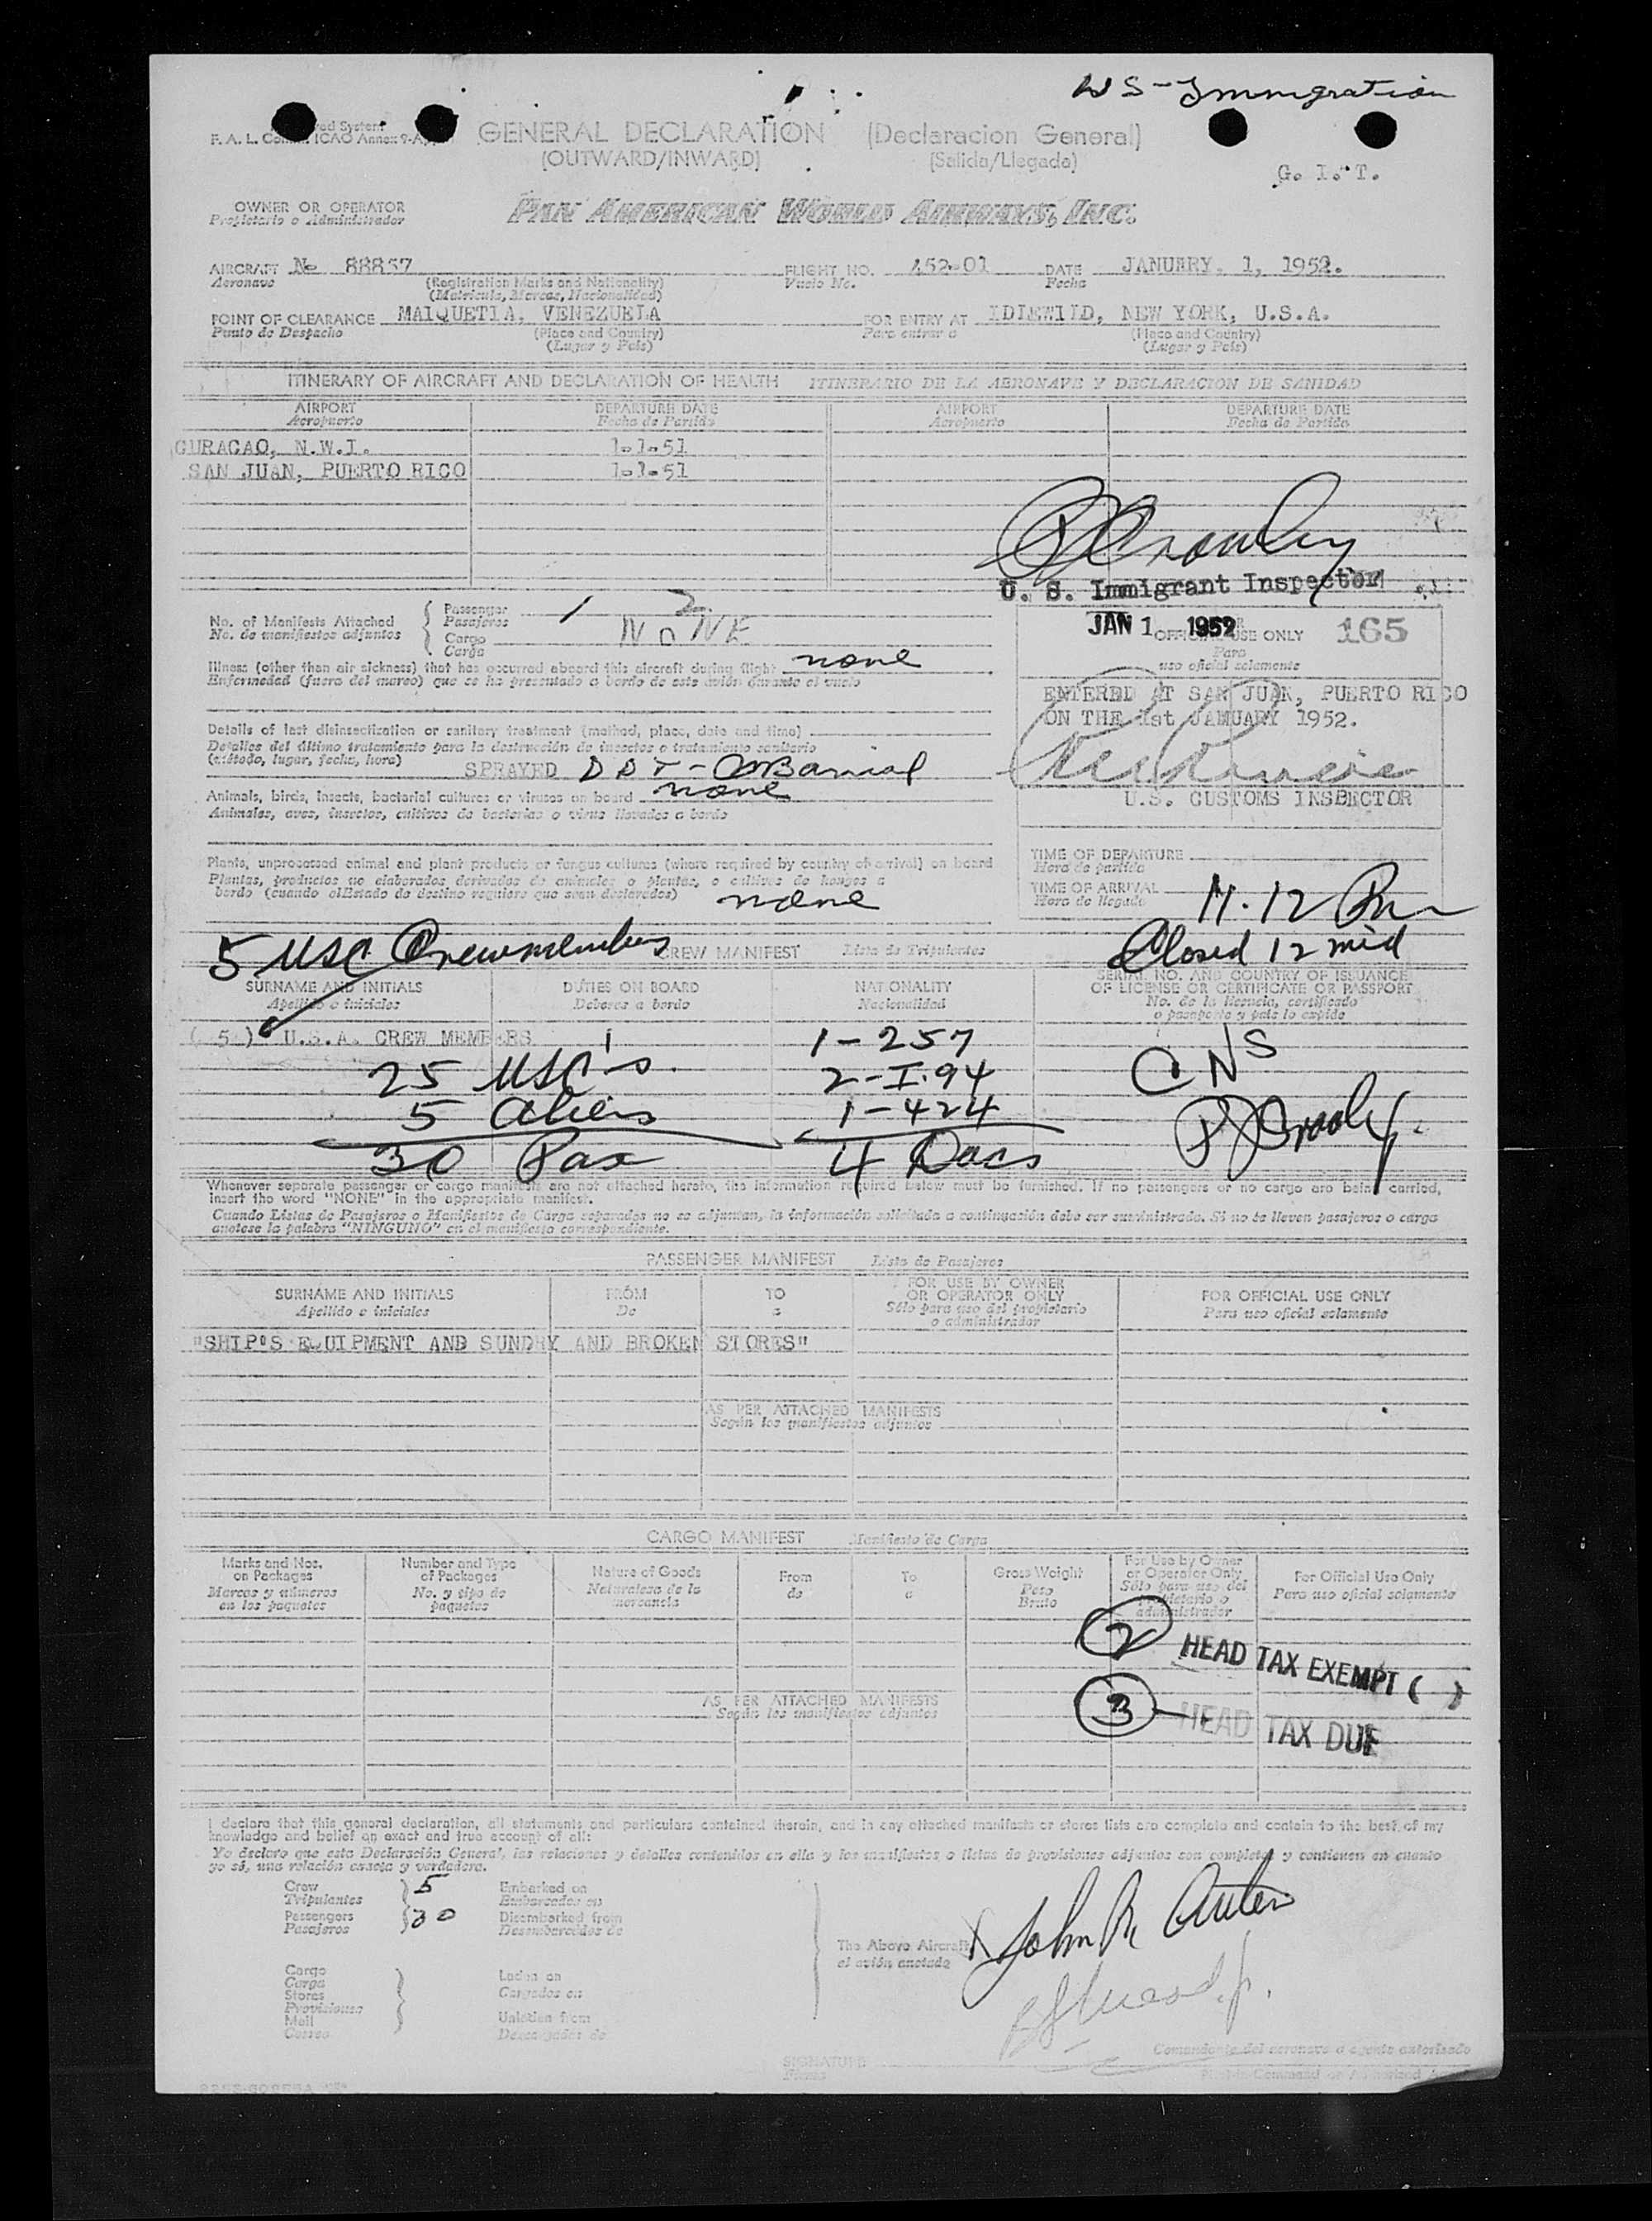 US-Immigration
GENERAL DECLARATION (Declaracion General)
F. A. L. ICAO Annex 9-
(OUTWARD/INWARD) (Salida/Llegada)
G. I. T.
OWNER OR OPERATOR
Propietario o Administrador
PAN AMERICAN WORLD AIRWAYS, INC.
AIRCRAFT No 88857 FLIGHT NO. 452-01 DATE JANUARY. 1, 1952.
Aeronave (Registration Marks and Nationality) Vuelo No. Fecha
(Matricula, Marcas, Nacionalidad)
POINT OF CLEARANCE MAIQUETIA, VENEZUELA FOR ENTRY AT IDLEWILD, NEW YORK, U.S.A.
Punto de Despacho (Place and Country) Para entrar a (Place and Country)
(Lugar y Pais) (Lugar y Pais)
ITINERARY OF AIRCRAFT AND DECLARATION OF HEALTH ITINERARIO DE LA AERONAVE Y DECLARACION DE SANIDAD
AIRPORT DEPARTURE DATE AIRPORT DEPARTURE DATE
Aeropuerto Fecha de Partida Aeropuerto Fecha de Partida
CURACAO, N.W.I. 1-1-51
SAN JUAN, PUERTO RICO 1-1-51
U. S. Immigrant Inspector
No. of Manifests Attached
No. de manifiestos adjuntos
Passenger 1 2
Pasajeros
Cargo NONE
Carga
JAN 1 1952
OFFICIAL USE ONLY 165
Para
uso oficial solamente
Illness (other than air sickness) that has occurred aboard this aircraft during flight none
Enfermedad (fuera del mareo) que se ha presentado a bordo de este avión durante el vuelo
ENTERED AT SAN JUAN, PUERTO RICO
ON THE 1st JANUARY 1952.
U.S. CUSTOMS INSPECTOR
Details of last disinsectization or sanitary treatment (method, place, date and time)
Detalles del último tratamiento para la destrucción de insectos o tratamiento sanitario
(método, lugar, fecha, hora) SPRAYED DDT-
Animals, birds, insects, bacterial cultures or viruses on board none
Animales, aves, insectos, cultivos de bacterias o virus llevados a bordo
Plants, unprocessed animal and plant products or fungus cultures (where required by country of arrival) on board
Plantas, productos no elaborados derivados de animales o plantas, o cultivos de hongos a
bordo (cuando el Estado de destino requiere que sean declarados) none
TIME OF DEPARTURE
Hora de partida
TIME OF ARRIVAL 11.12 Pm
Hora de llegada
Closed 12 mid
5 USC Crewmembers
CREW MANIFEST Lista de Tripulantes
SURNAME AND INITIALS DUTIES ON BOARD NATIONALITY SERIAL NO. AND COUNTRY OF ISSUANCE
OF LICENSE OR CERTIFICATE OR PASSPORT
Apellido e iniciales Deberes a bordo Nacionalidad No. de la licencia, certificado
o pasaporte y pais lo expide
( 5 ) U.S.A. CREW MEMBERS 1-257
25 USC's. 2-I.94
5 aliens 1-424
30 Pax 4 Docs
Whenever separate passenger or cargo manifests are not attached hereto, the information required below must be furnished. If no passengers or no cargo are being carried,
insert the word "NONE" in the appropriate manifest.
Cuando Listas de Pasajeros o Manifiestos de Carga separados no se adjuntan, la información solicitada a continuación debe ser suministrada. Si no se lleven pasajeros o carga
anotese la palabra "NINGUNO" en el manifiesto correspondiente.
PASSENGER MANIFEST Lista de Pasajeros
SURNAME AND INITIALS FROM TO FOR USE BY OWNER
OR OPERATOR ONLY FOR OFFICIAL USE ONLY
Apellido e iniciales De a Sólo para uso del propietario
o administrador Para uso oficial solamente
"SHIP'S EQUIPMENT AND SUNDRY AND BROKEN STORES"
AS PER ATTACHED MANIFESTS
Según los manifiestos adjuntos
CARGO MANIFEST Manifiesto de Carga
Marks and Nos.
on Packages
Marcas y números
en los paquetes
Number and Type
of Packages
No. y tipo de
paquetes
Nature of Goods
Naturaleza de la
mercancia
From
de
To
a
Gross Weight
Peso
Bruto
For Use by Owner
or Operator Only
Sólo para uso del
propietario o
administrador
For Official Use Only
Para uso oficial solamente
2 HEAD TAX EXEMPT ( )
AS PER ATTACHED MANIFESTS
Según los manifiestos adjuntos
3 HEAD TAX DUE
I declare that this general declaration, all statements and particulars contained therein, and in any attached manifests or stores lists are complete and contain to the best of my
knowledge and belief an exact and true account of all:
Yo declaro que esta Declaración General, las relaciones y detalles contenidos en ella y los manifiestos o listas de provisiones adjuntos son completos y contienen en cuanto
yo sé, una relación exacta y verdadera.
Crew 5 Embarked on
Tripulantes Embarcados en
Passengers 30 Disembarked from
Pasajeros Desembarcados de
The Above Aircraft
el avión anotado
X John R. Auten
Cargo
Carga
Stores
Provisiones
Mail
Correo
Laden on
Cargados en
Unladen from
Descargados de
Comandante del aeronave o agente autorizado
SIGNATURE
Firma